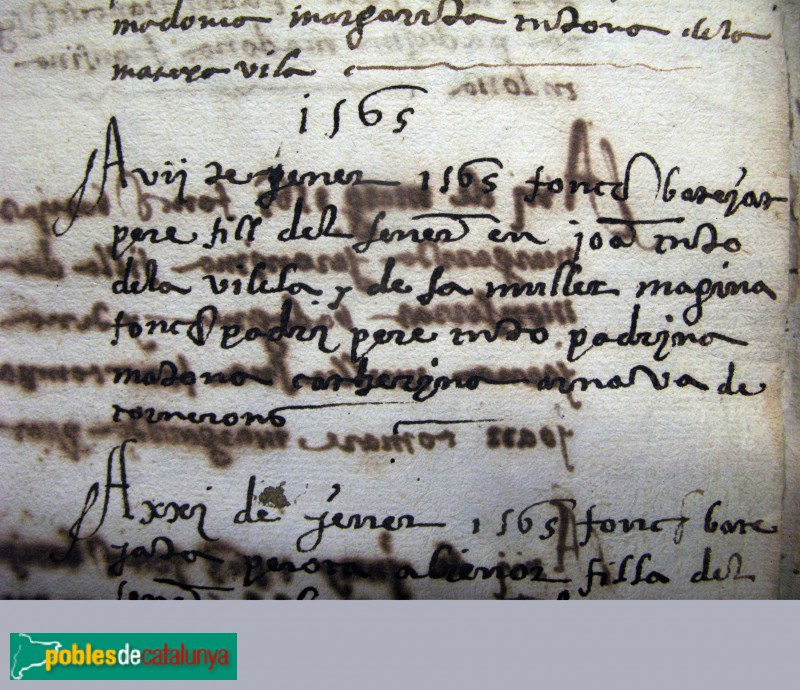 madona margarita ... dela
matexa vila
1565
A vij de jener 1565 fonc batejat
pere fill del sener en joa
dela vilela y de sa muller magina
fonc padri pere padrina
madona catherina arnava de
cornerons
A xxj de jener 1565 fonc bate
jada filla del
poblesdecatalunya